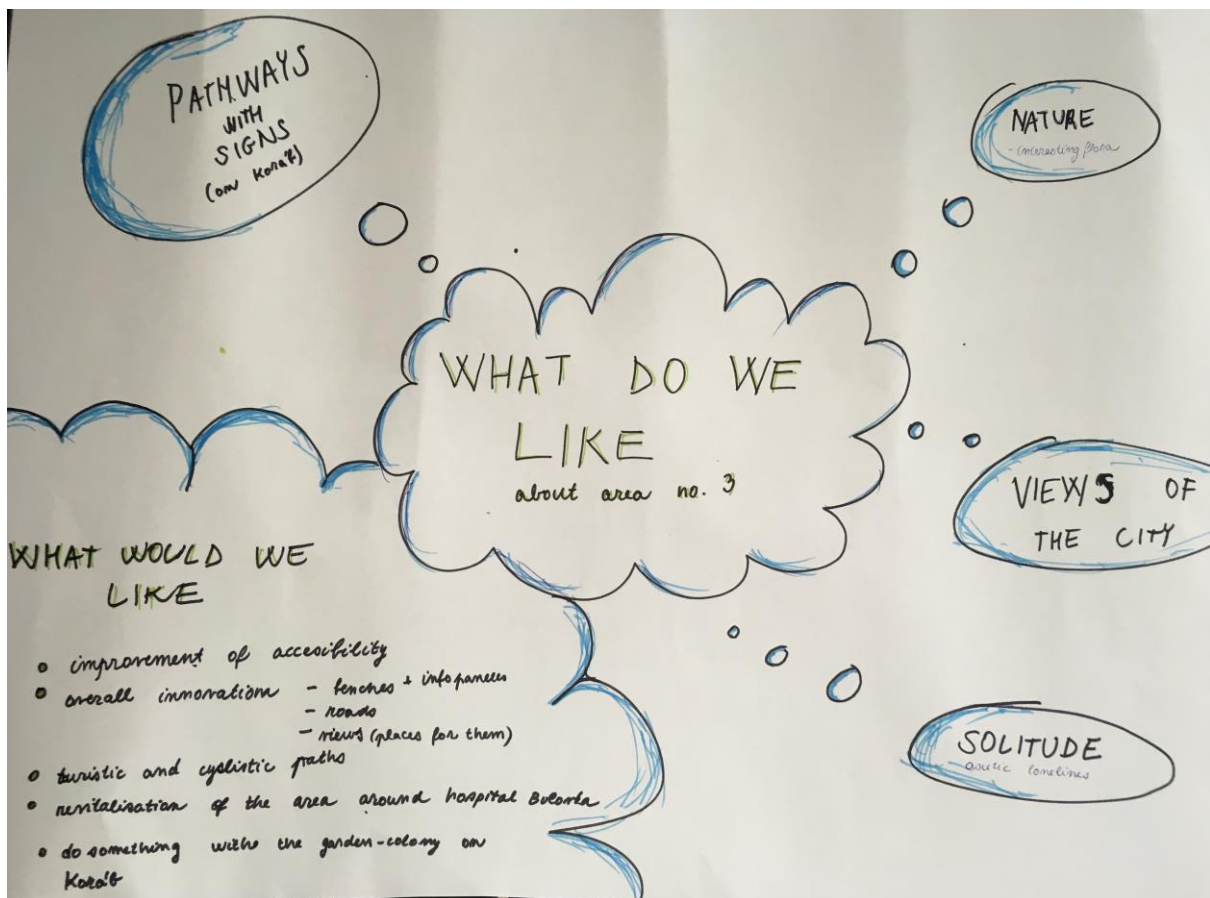 PATHWAYS
WITH
SIGNS
(on Koráb)
NATURE
- interesting flora
WHAT DO WE
LIKE
about area no. 3
VIEWS OF
THE CITY
SOLITUDE
WHAT WOULD WE
LIKE
• improvement of accesibility
• overall innovation - benches + infopaneles
- roads
- views (places for them)
• turistic and cyclistic paths
• revitalisation of the area around hospital
• do something with the garden-colony on
Koráb